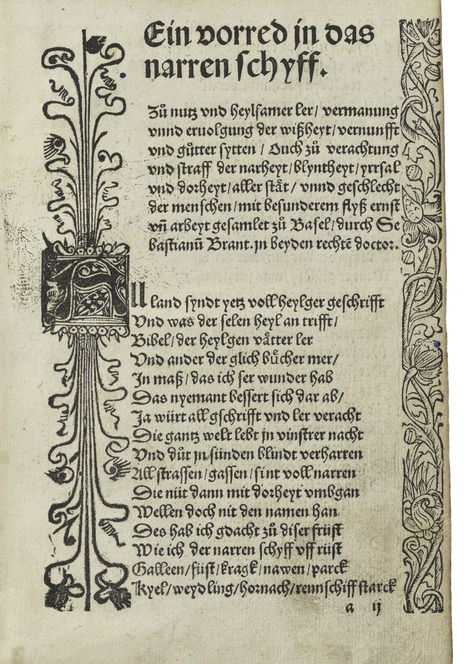 Ein vorred in das
narren schyff.
Zů nutz vnd heylsamer ler / vermanung
vnnd ervolgung der wißheyt / vernunfft
vnd gůtter sytten / Ouch zů verachtung /
vnd straff der narheyt / blyntheyt / yrrsal
vnd dorheyt / aller stått / vnnd geschlecht
der menschen / mit besunderem flyß ernst
vñ arbeyt gesamlet zů Basel / durch Se
bastianũ Brant. jn beyden rechtẽ doctor.
All land syndt yetz voll heylger geschrifft
Vnd was der selen heyl an trifft /
Bibel / der heylgen våtter ler
Vnd ander der glich bůcher mer /
Jn maß / das ich ser wunder hab
Das nyemant bessert sich dar ab /
Ja würt all gschrifft vnd ler veracht
Die gantz welt lebt in vinstrer nacht
Vnd důt in sünden blindt verharren
All strassen / gassen / sint voll narren
Die nüt dann mit dorheyt vmbgan
Wellen doch nit den namen han
Des hab ich gdacht zů diser früst
Wie ich der narren schyff vff rüst
Galleen / füst / kragk / nawen / parck
Kyel / weydling / hornach / rennschiff starck
a ij